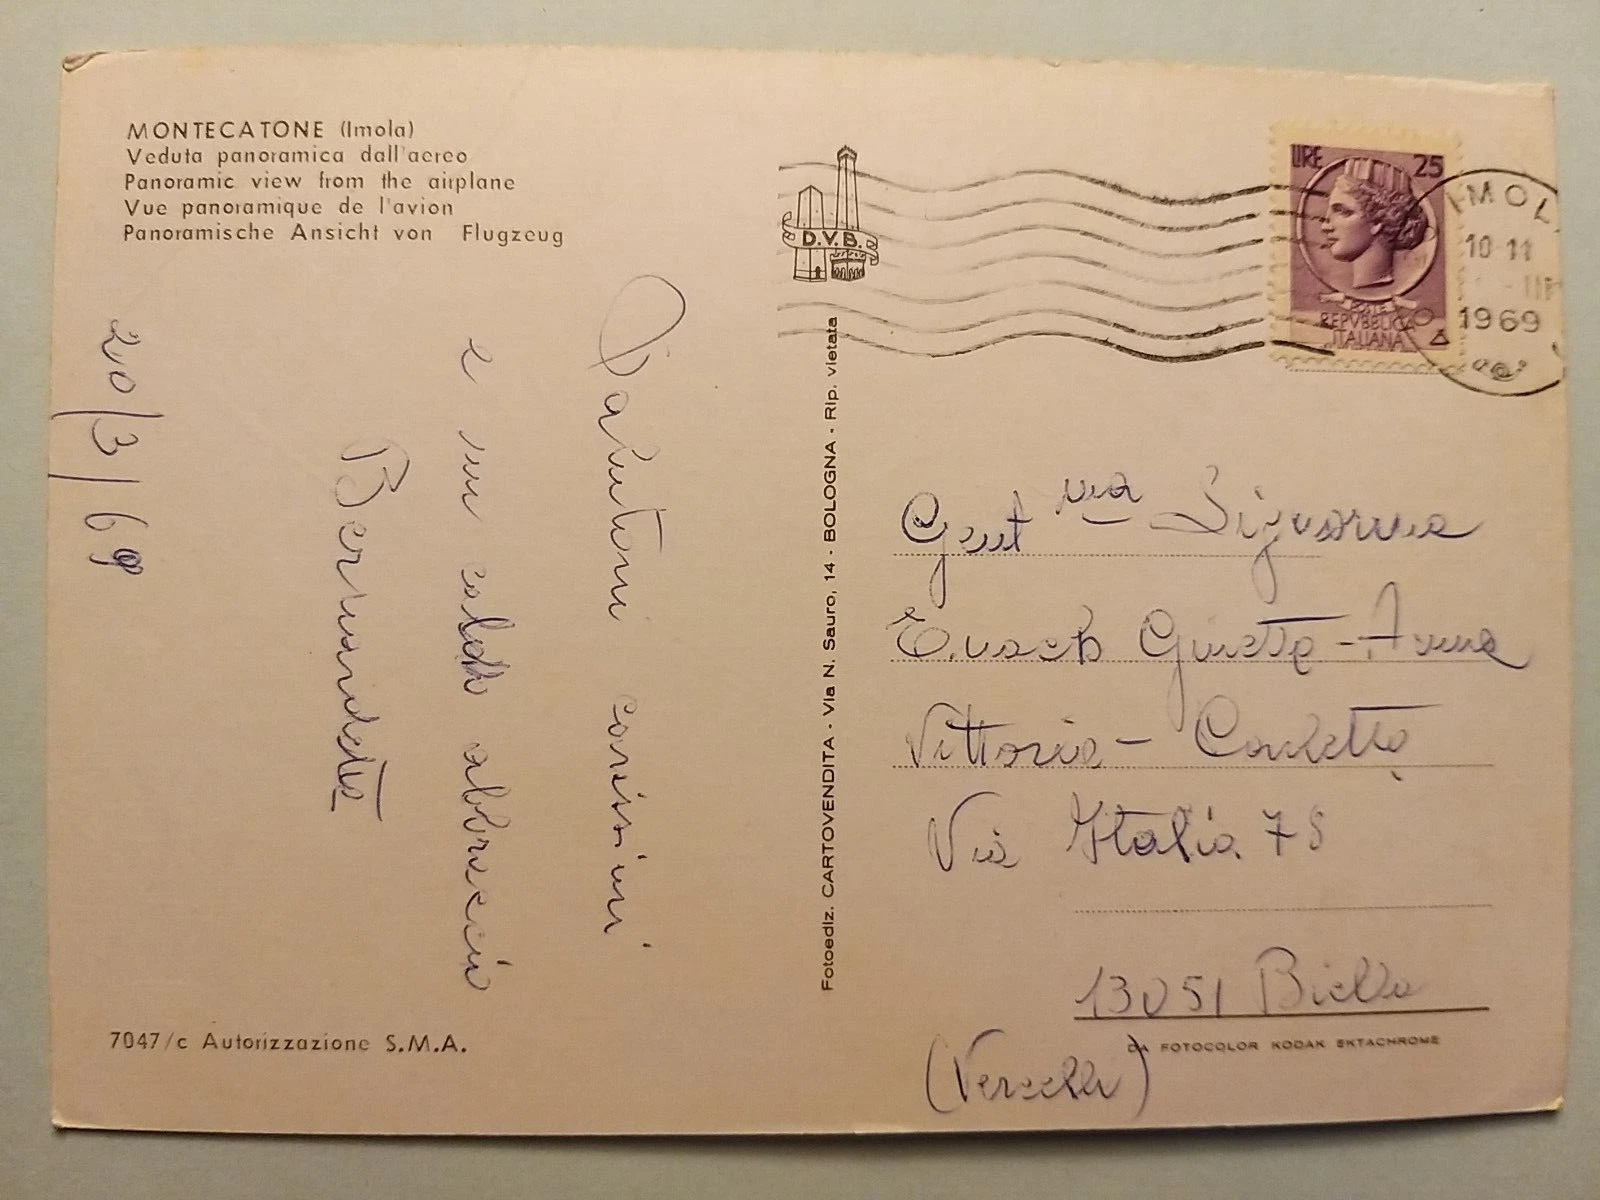 MONTECATONE (Imola)
Veduta panoramica dall'aereo
Panoramic view from the airplane
Vue panoramique de l'avion
Panoramische Ansicht von Flugzeug
20/3/69
Salutoni carissimi
e un caldo abbraccio
Bernardetta
7047/c Autorizzazione S.M.A.
D.V.B.
Fotoediz. CARTOVENDITA - Via N. Sauro, 14 - BOLOGNA - Rip. vietata
LIRE 25
REPVBBLICA
ITALIANA
IMOL
10-11
III
1969
Gent ma Signorina
Ginetta - Anna
Vittoria - Carletta
Via Italia 78
13051 Biella
(Vercelli)
DA FOTOCOLOR KODAK EKTACHROME